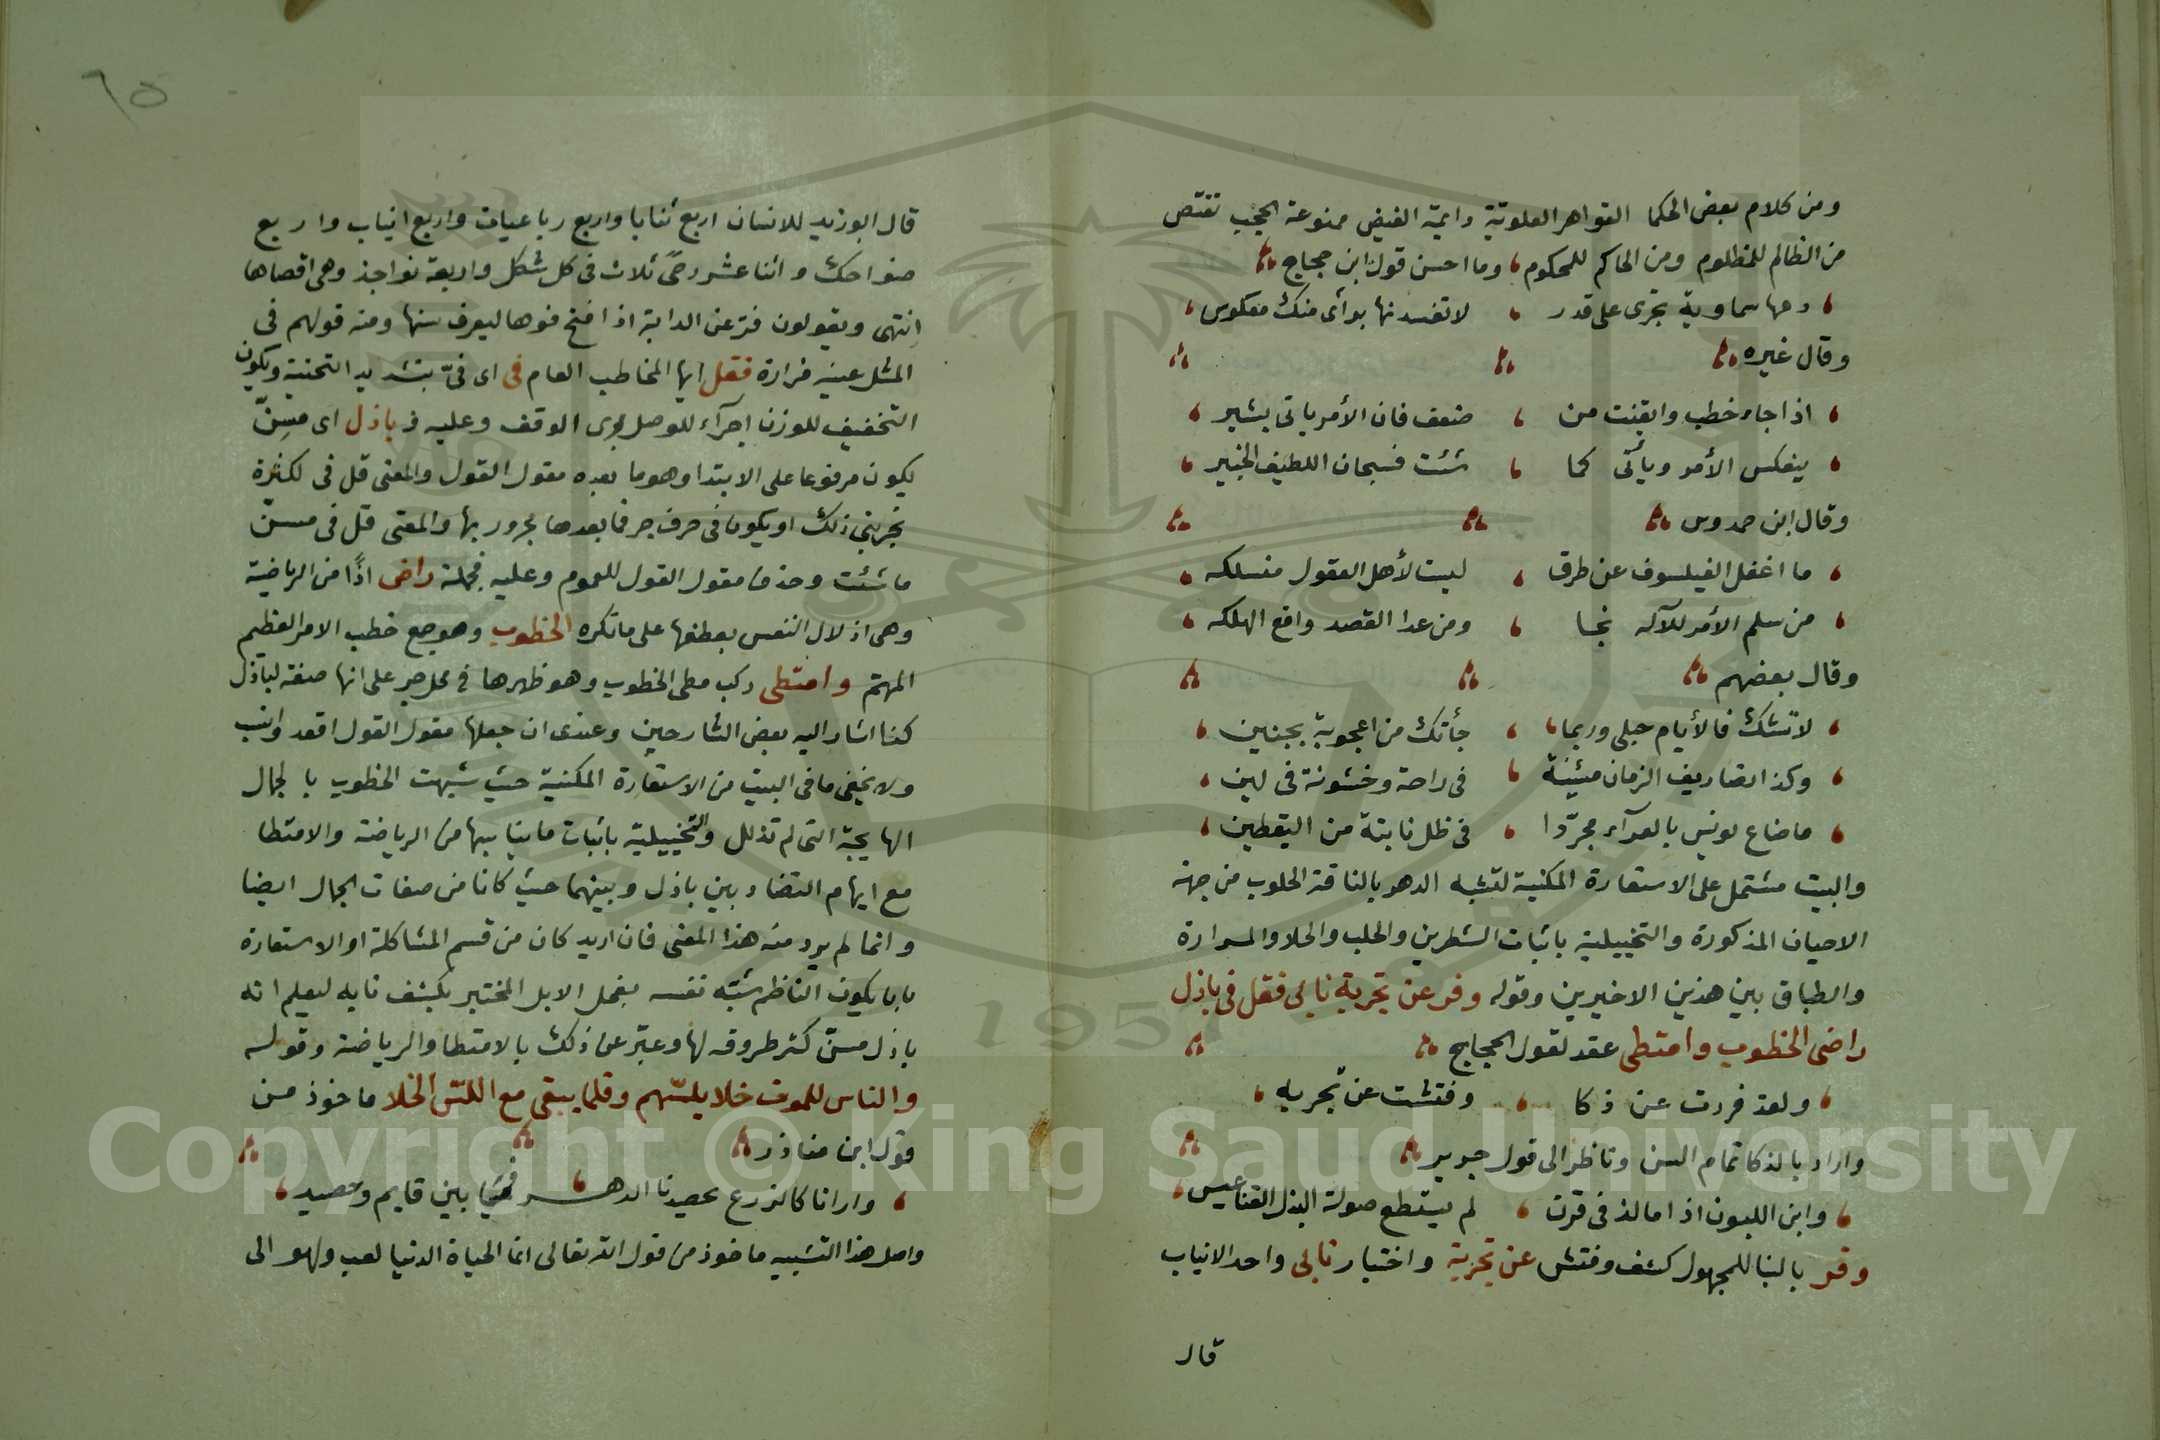 ومن كلام بعض الحكما القواهر العلوية دايمة الفيض ممنوعة الحجب تقتص
من الظالم للمظلوم ومن الحاكم للمحكوم وما احسن قول ابن حجاج
دعها سماوية تجرى على قدر لا تفسدنها برأى منك معكوس
وقال غيره
اذا جاء خطب وايقنت من ضعف فان الأمر ياتى بشير
ينعكس الأمر ويأتى كما شئت فسبحان اللطيف الخبير
وقال ابن حمدوس
ما اغفل الفيلسوف عن طرق ليست لأهل العقول منسلكه
من سلم الأمر للآله نجا ومن عدا القصد واقع الهلكه
وقال بعضهم
لا تشك فالأيام حبلى وربما جأتك من اعجوبة بجنين
وكذا تصاريف الزمان مبينة فى راحة وخشونة فى لين
ما ضاع يونس بالعرآء مجردا فى ظل نابتة من اليقطين
والبيت مشتمل على الاستعارة المكنية لتشبه الدهر بالناقة الحلوب من جهة
الاحيان المذكورة والتخييلية باثبات الشطرين والحلب والحلا والمرارة
والطباق بين هذين الاخيرين وقوله وفر عن تجربة نابى فقل فى باذل
راض الخطوب وامتطى عقد لقول الحجاج
ولقد فررت عن ذكا وفتشت عن تجربه
واراد بالذكا تمام السن وناظر الى قول جرير
وابن اللبون اذا ما لذ فى قرن لم يستطع صولة البذل القناعيس
وفر بالبنا للمجهول كشف وفتش عن تجربة واختبار نابى واحد الانياب
قال
٦٥
قال ابو زيد للانسان اربع ثنايا واربع رباعيات واربع انياب واربع
ضواحك واثنا عشر رحىً ثلاث فى كل شكل واربعة نواجذ وهى اقصاها
انتهى ويقولون فر عن الدابة اذا فتح فوها ليعرف سنها ومنه قولهم فى
المثل عينه فراره فقل ايها المخاطب العام فى اى فىّ بتشديد التحتية ويكون
التخفيف للوزن اجرآء للوصل مجرى الوقف وعليه فـ باذل اى مسنّ
يكون مرفوعا على الابتدا وهو ما بعده مقول القول والمعنى قل فى لكثرة
تجربتى ذلك او يكون فى حرف جر فما بعدها مجرور بها والمعنى قل فى مسن
ما شئت وحذف مقول القول للعموم وعليه فجملة راض اذًا من الرياضة
وهى اذلال النفس بعطفها على ما تكره الخطوب وهو جمع خطب الامر العظيم
المهتم وامتطى ركب مطى الخطوب وهو ظهرها فى محل جر على انها صفة لباذل
كذا اشار اليه بعض الشارحين وعندى ان جعلها مقول القول اقعد وانسب
ولا يخفى ما فى البيت من الاستعارة المكنية حيث شبهت الخطوب بالجمال
الهايجة التى لم تذلل والتخييلية باثبات ما يناسبها من الرياضة والامتطا
مع ايهام التضاد بين باذل وبينهما حيث كانا من صفات الجمال ايضا
وانما لم يرد منه هذا المعنى فان اريد كان من قسم المشاكلة او الاستعارة
بان يكون الناظم شبه نفسه بفحل الابل المختبر بكشف نابه ليعلم انه
باذل مسن كثر طروقه لها وعبر عن ذلك بالامتطا والرياضة وقوله
والناس للموت خلا يلسّهم وقلما يبقى مع اللسّ الخلا ماخوذ من
قول ابن مناذر
وارانا كالزرع يحصدنا الدهر فمن بين قايم وحصيد
واصل هذا التشبيه ماخوذ من قول الله تعالى انما الحياة الدنيا لعب ولهو الى
Copyright © King Saud University
1957